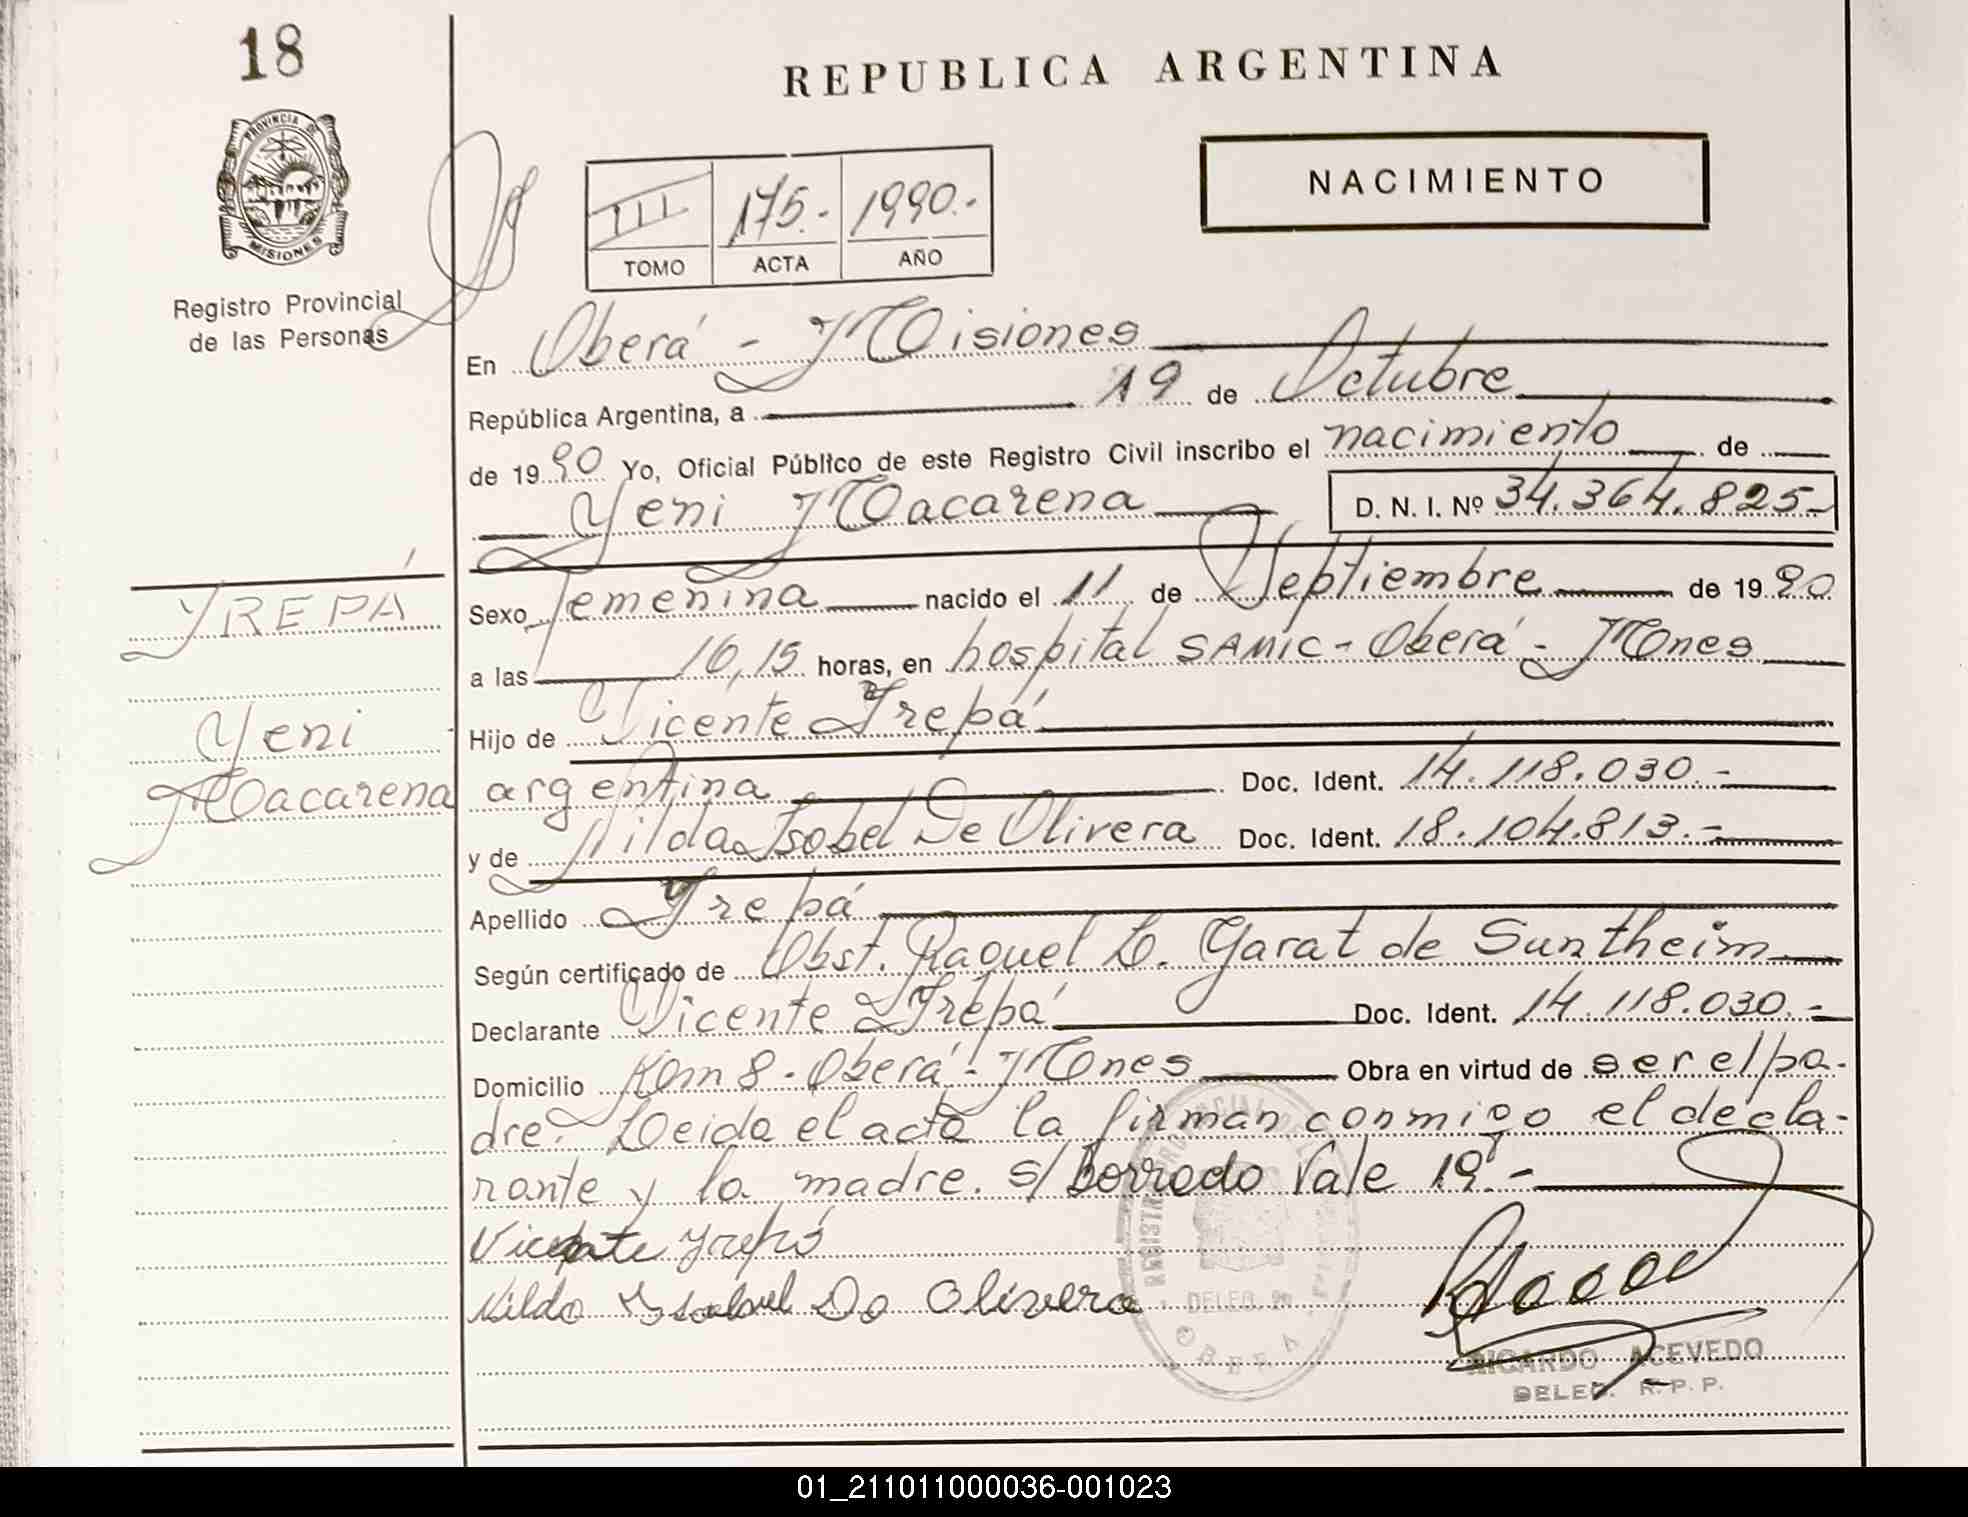 18
REPUBLICA ARGENTINA
PROVINCIA DE
MISIONES
NACIMIENTO
III 175.- 1990.-
TOMO ACTA AÑO
Registro Provincial
de las Personas
En Oberá - Misiones
República Argentina, a 19 de Octubre
de 1990 Yo, Oficial Público de este Registro Civil inscribo el nacimiento de
Yeni Macarena D. N. I. Nº 34.364.825-
YREPÁ
Sexo femenina nacido el 11 de Septiembre de 1990
a las 16,15 horas, en hospital SAMIC - Oberá - Mones
Yeni
Macarena
Hijo de Vicente Yrepá
argentina Doc. Ident. 14.118.030.-
y de Nilda Isabel De Olivera Doc. Ident. 18.104.813.-
Apellido Yrepá
Según certificado de Obst. Raquel L. Garat de Suntheim
Declarante Vicente Yrepá Doc. Ident. 14.118.030.-
Domicilio Km 8 - Oberá - Mones Obra en virtud de ser el pa-
dre. Leida el acta la firman conmigo el decla-
rante y la madre. s/ Borrado Vale 19.-
Vicente Yrepá
Nilda Isabel De Olivera
DELEG.
OBERA
RICARDO ACEVEDO
DELEG. R. P. P.
01_211011000036-001023